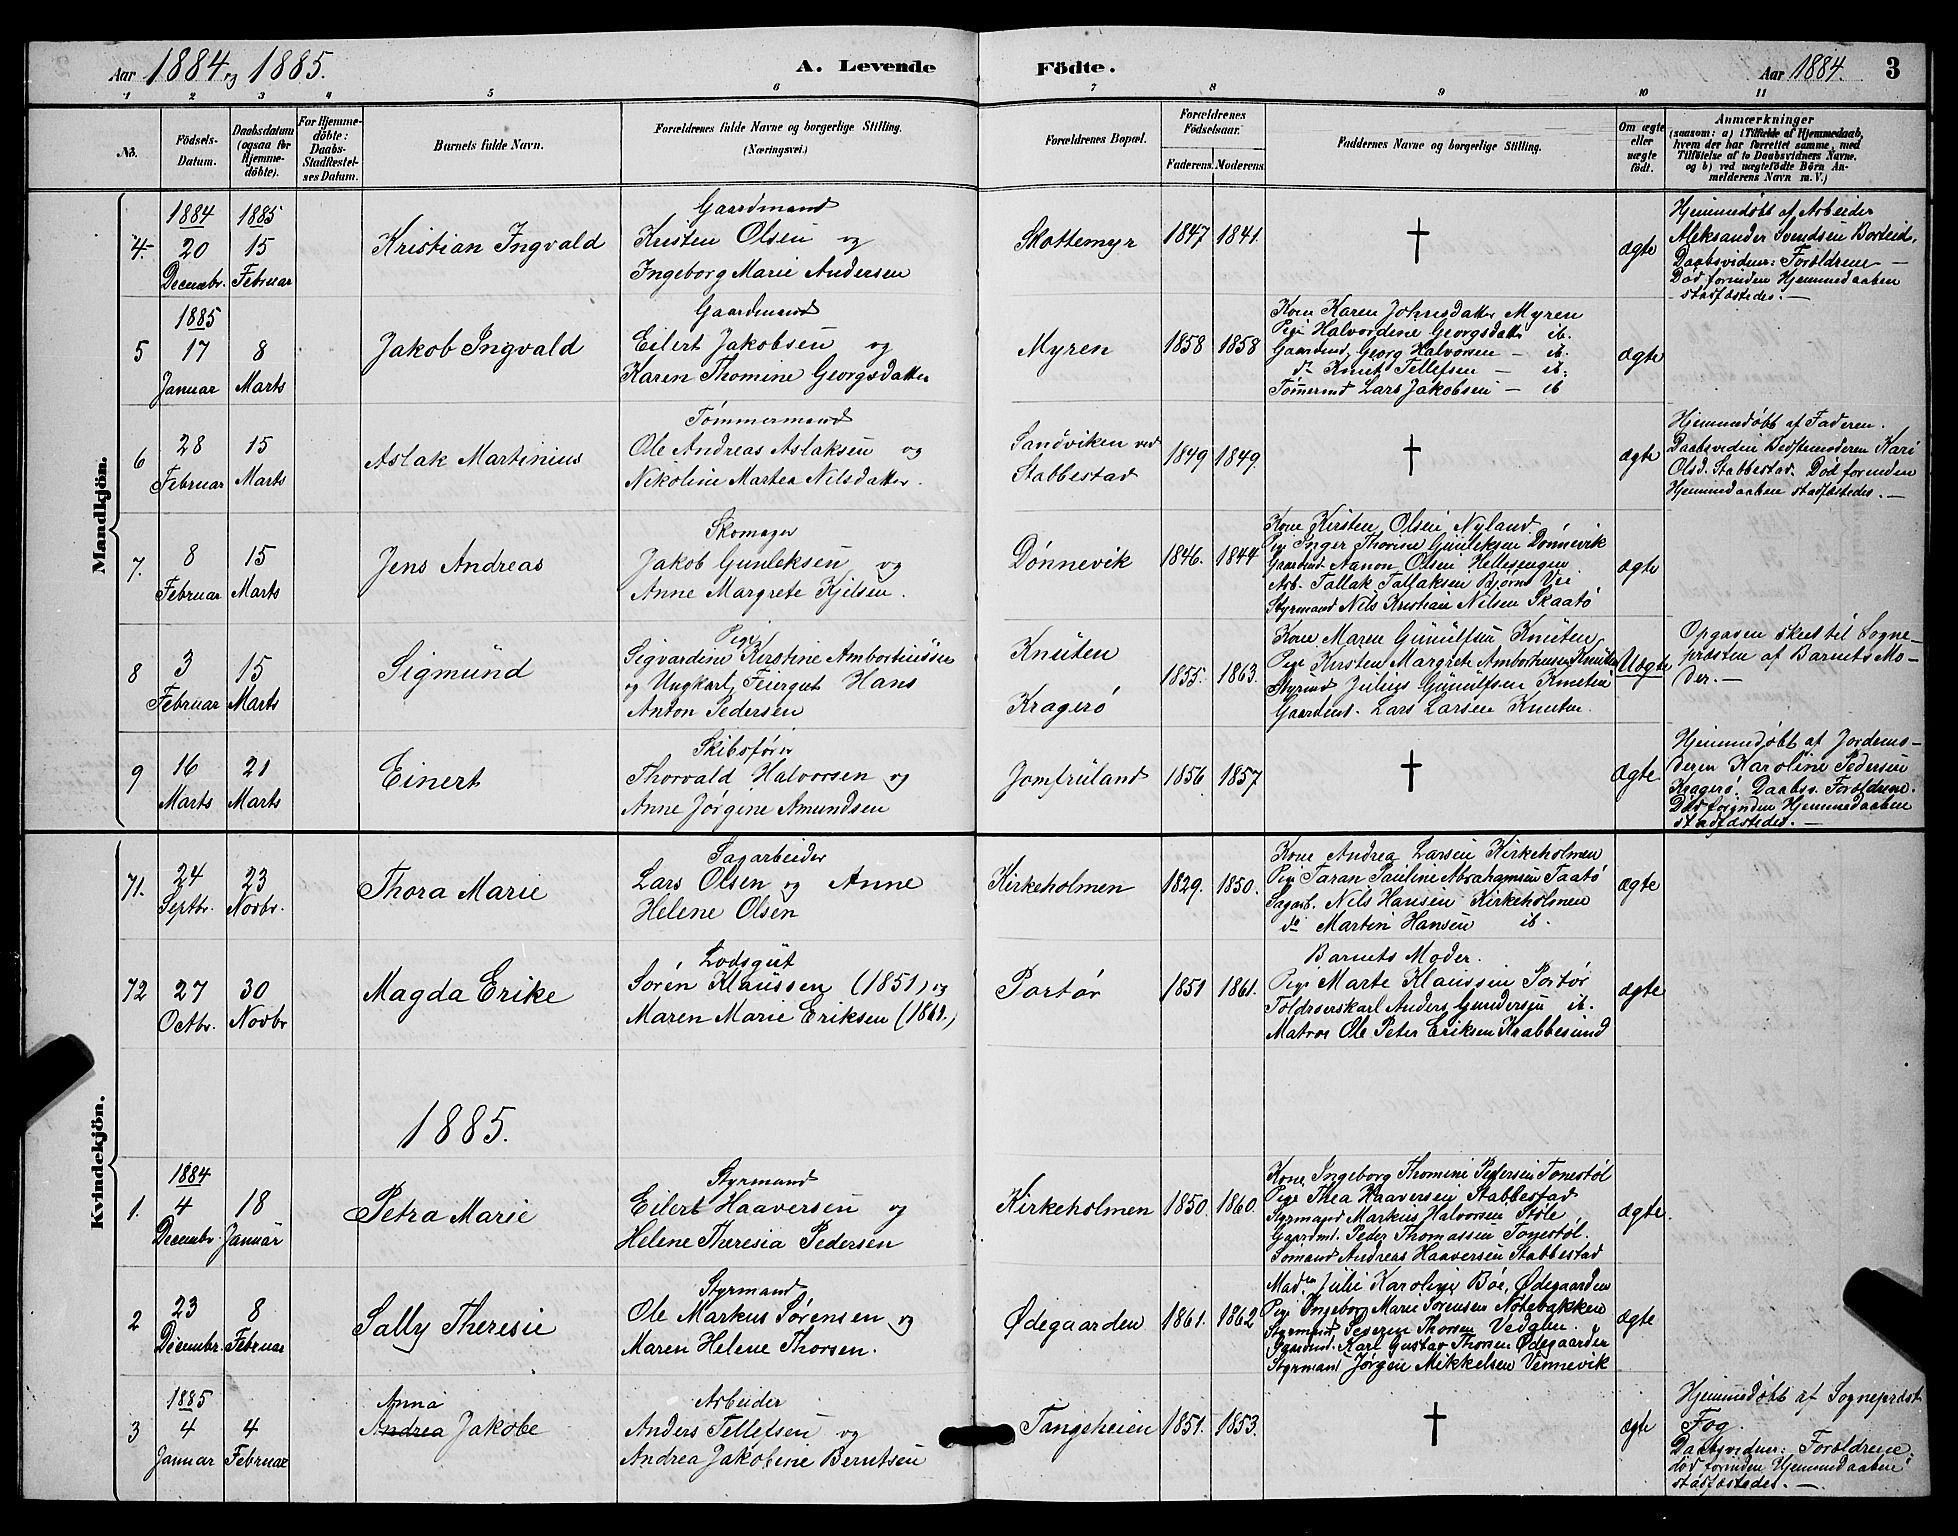 Aar 1884 og 1885.
A. Levende Födte.
Aar 1884. 3
1 2 3 4 5 6 7 8 9 10 11
No.
Födsels-Datum.
Daabsdatum (ogsaa for Hjemme-döbte).
For Hjemme-döbte: Daabs-Stadfæstel-ses Datum.
Barnets fulde Navn.
Forældrenes fulde Navne og borgerlige Stilling.
(Næringsvei.)
Forældrenes Bopæl.
Forældrenes Födselsaar.
Faderens. Moderens.
Faddernes Navne og borgerlige Stilling.
Om ægte eller uægte födt.
Anmærkninger
(saasom: a) i Tilfælde af Hjemmedaab,
hvem der har forrettet samme, med
Tilföielse af to Daabsvidners Navne,
og b) ved uægtefödte Börn An-
melderens Navn m. V.)
Mandkjön.
4. 1884 20 Decembr. 1885 15 Februar
Kristian Ingvald
Gaardmand
Kristen Olsen og
Ingeborg Marie Andersen
Skottemyr 1847 1841.
†
ægte
Hjemmedøbt af Arbeider
Aleksander Svendsen
Daabsvidner: Forældrene —
Død forinden Hjemmedaaben
stadfæstedes. —
5 1885 17 Januar 8 Marts
Jakob Ingvald
Gaardmand
Eilert Jakobsen og
Karen Thomine Georgsdatter
Myren 1858 1858
Kone Karen Johnsdatter Myren
Pige Halvordine Georgsdatter ib.
Gaardmd. Georg Halvorsen — ib.
do Knut Tellefsen — ib.
Tømermd Lars Jakobsen — ib
ægte
6 28 Februar 15 Marts
Aslak Martinius
Tömmermand
Ole Andreas Aslaksen og
Nikoline Martea Nilsdatter.
Sandviken ved
Stabbestad
1849 1849.
†
ægte
Hjemmedøbt af Faderen.
Daabsvidne Bedstemoderen Kari
Olsd. Stabbestad. Død forinden
Hjemmedaaben stadfæstedes. —
7. 8 Februar 15 Marts
Jens Andreas
Skomager
Jakob Gunleksen og
Anne Margrete Kjelsen.
Dønnevik 1846. 1844
Kone Kirsten Olsen Nyland
Pige Inger Thorine Gunleksen Dønnevik
Gaardmd Nanon Olsen Hellesengen
Arb. Tallak Tallaksen Bjørns Vei
Styrmand Nils Kristian Nilsen Skaatø
ægte
8 3 Februar 15 Marts
Sigmund
Pige
Sigvardine Kirstine Ambortiussen
og Ungkarl, Feiergut Hans
Anton Pedersen
Knuten
Kragerø
1855. 1863.
Kone Maren Gunulfsen Knuten
Pige Kirsten Margrete Ambortiussen Knuten
Styrmd Julius Gunulfsen Knuten
Gaardmt. Lars Larsen Knuten.
Uægte
Opgaven skeet til Sogne-
præsten af Barnets Mo-
der. —
9 16 Marts 21 Marts
Einert
Skibsfører
Thorvald Halvorsen og
Anne Jørgine Amundsen
Jomfruland 1856 1857
†
Ægte
Hjemmedøbt af Jordemo-
deren Karoline Pedersen
Kragerø. Daabsv. Forældrene.
Død forinden Hjemmedaaben
stadfæstedes. —
Kvindekjön.
71. 24 Septbr. 23 Novbr.
Thora Marie
Sagarbeider
Lars Olsen og Anne
Helene Olsen
Kirkeholmen 1829. 1850.
Kone Andrea Larsen Kirkeholmen
Pige Taran Pauline Abrahamsen Taatø
Sagarb. Nils Hansen Kirkeholmen
do Martin Hansen ib.
ægte
72 27 Octbr. 30 Novbr
Magda Erike
Lodsgut
Sørén Klaussen (1851) og
Maren Marie Eriksen (1861.)
Portør 1851 1861.
Barnets Moder.
Pige Marte Klaussen Portør
Toldroerskarl Anders Gundersen ib.
Matros Ole Peter Eriksen Krabbesund
ægte
1885.
1. 1884 4 Decembr. 18 Januar
Petra Marie
Styrmand
Eilert Haaversen og
Helene Theresia Pedersen
Kirkeholmen 1850. 1860.
Kone Ingeborg Thomine Pedersen Tonestøl
Pige Thea Haaversen Stabbestad
Styrmand Markus Halvorsen Støle
Gaardmt. Peder Thomassen Tonestøl.
Sømand Andreas Haaversen Stabbestad
ægte.
2 23 Decembr. 8 Februar
Sally Theresie
Styrmand
Ole Markus Sørensen og
Maren Helene Thorsen.
Ødegaarden 1861. 1862
Mad. Julie Karoline Boe, Ødegaarden
Pige Ingeborg Marie Sørensen Nøtebakken
Styrmand Severin Thorsen
Gaardmd. Karl Gustav Thorsen Ødegaarden
Styrmand Jørgen Mikkelsen Vennevik
ægte
3 1885 4 Januar 4 Februar
Anna
Andrea Jakobe
Arbeider
Anders Tellefsen og
Andrea Jakobine Berntsen
Tangeheien 1851. 1853.
†
ægte
Hjemmedøbt af Sognepræst
Fog.
Daabsvidner: Forældrene,
død forinden Hjemmedaaben
stadfæstedes. —